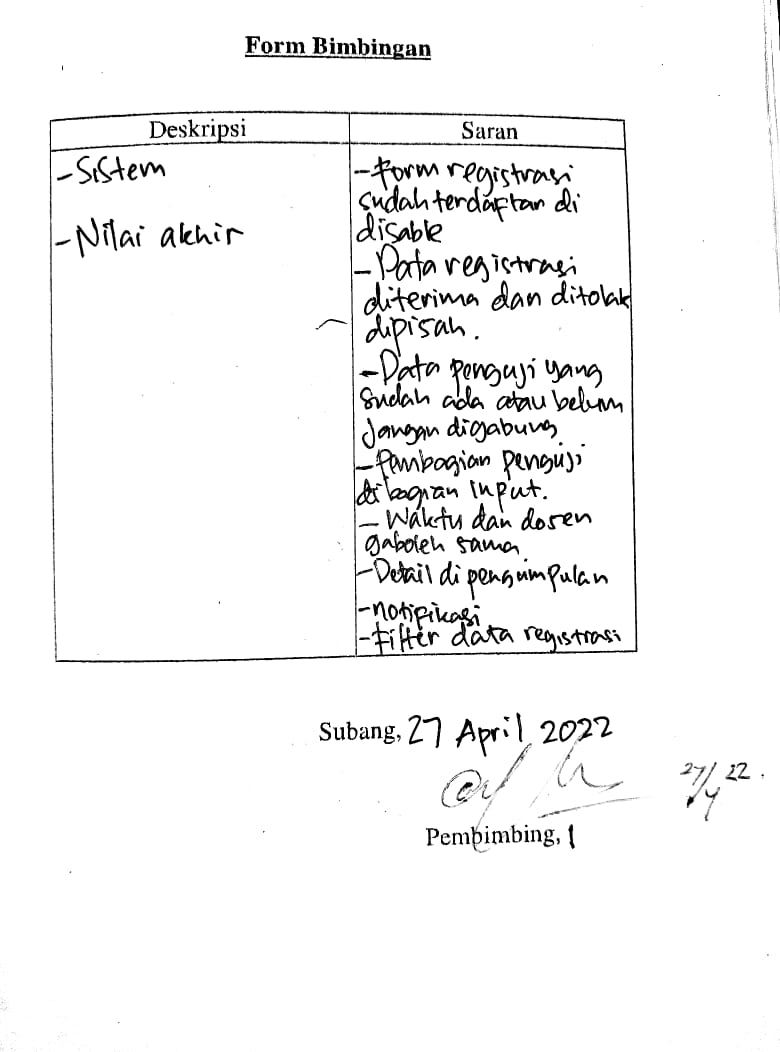 Form Bimbingan
Deskripsi
Saran
-Sistem
-Nilai akhir
-Form registrasi
sudah terdaftar di
disable
-Data registrasi
diterima dan ditolak
dipisah.
-Data penguji yang
sudah ada atau belum
jangan digabung
-Pembagian penguji
di bagian input.
-Waktu dan dosen
gaboleh sama
-Detail di pengumpulan
-notifikasi
-Filter data registrasi
Subang, 27 April 2022
27/4 22.
Pembimbing, 1